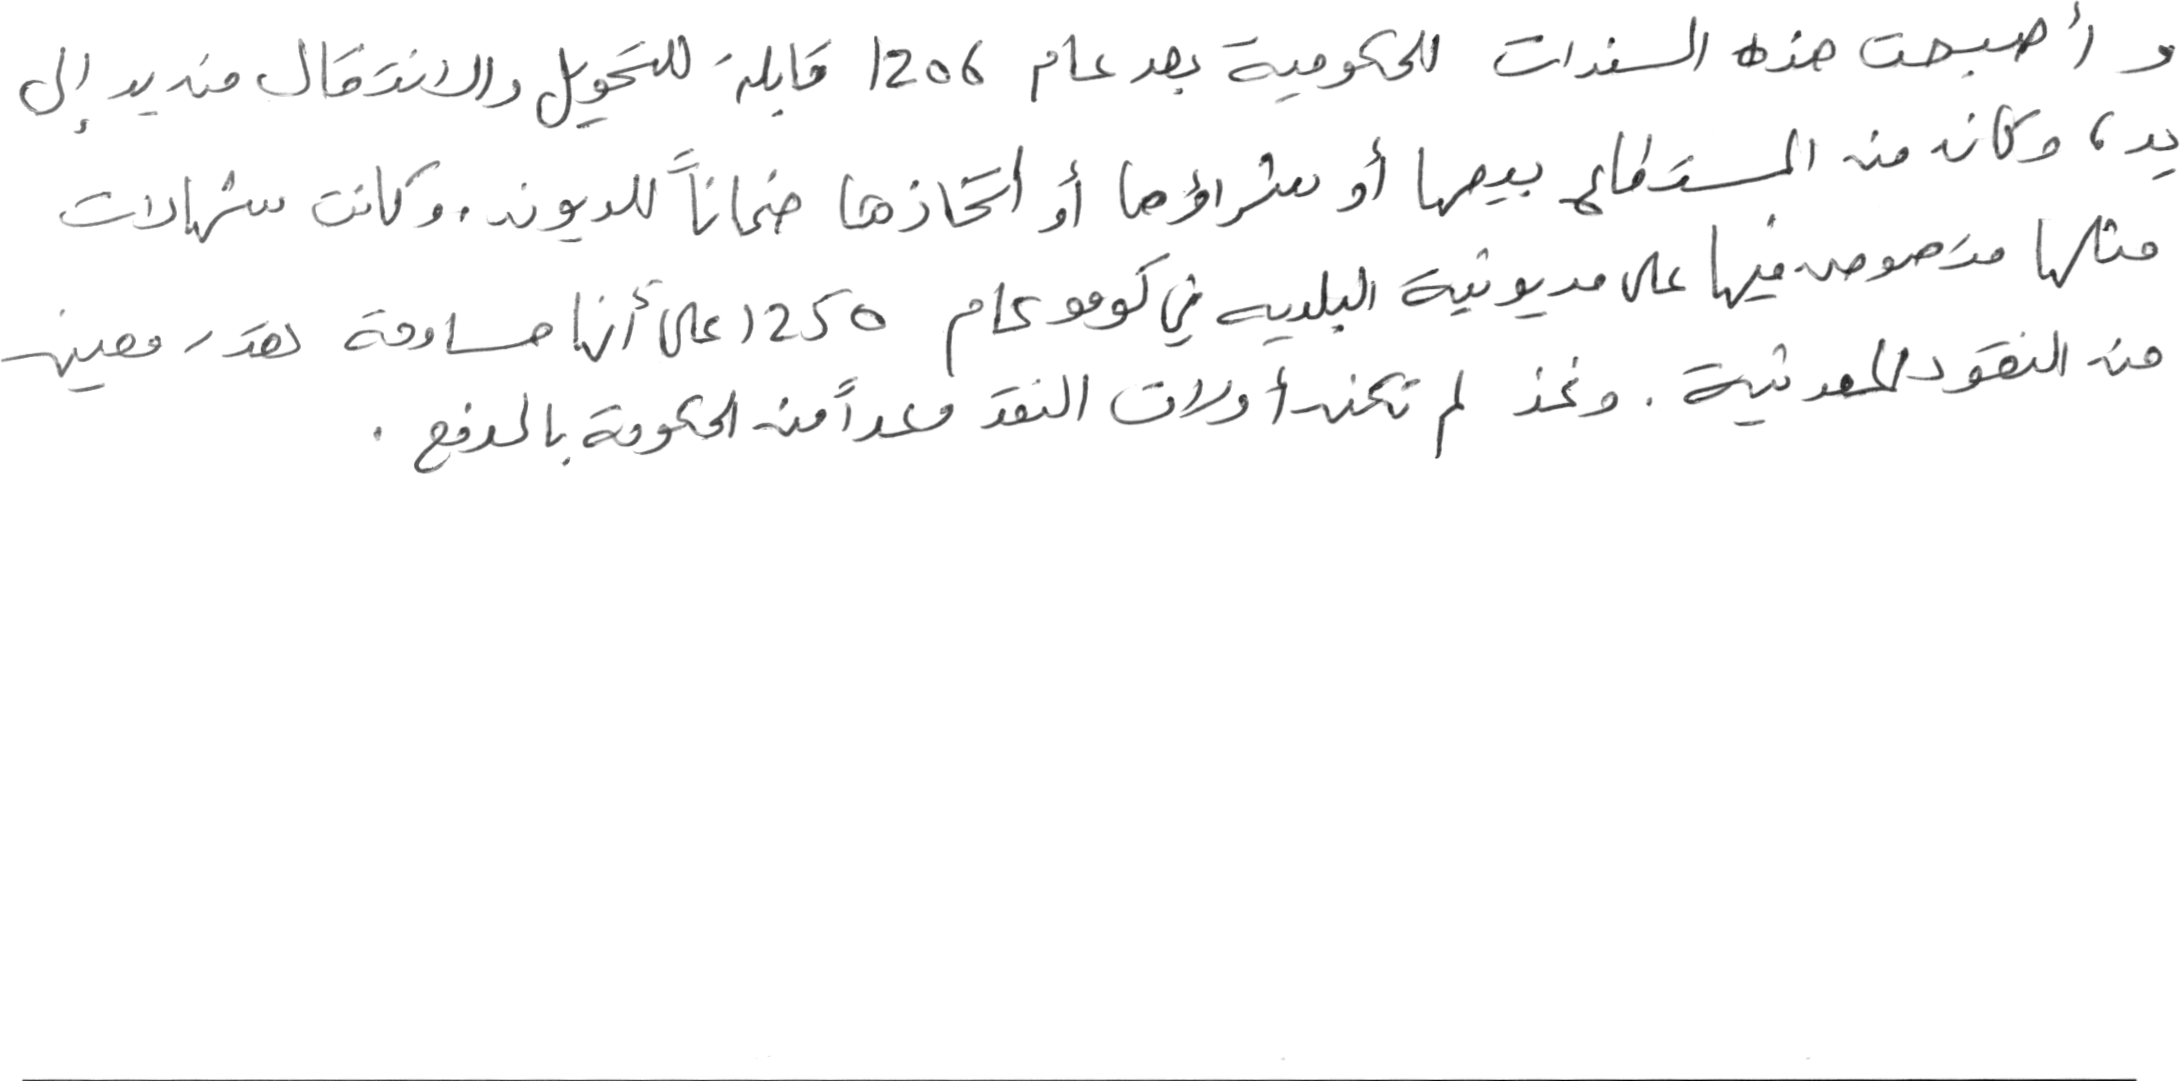 و أصبحت هذه السندات للحكومية بعد عام 1206 قابلة للتحويل والانتقال من يد إلى
يد، وكان من المستطاع بيعها أو شراؤها أو اتخاذها ضماناً للديون. وكانت شهادات
مثلها منصوص فيها على مديونية البلدية في كومو عام 1250 على أنها مساوية لقدر معين
من النقود المعدنية. وغذ لم تكن أولات النقد وعداً من الحكومة بالدفع.